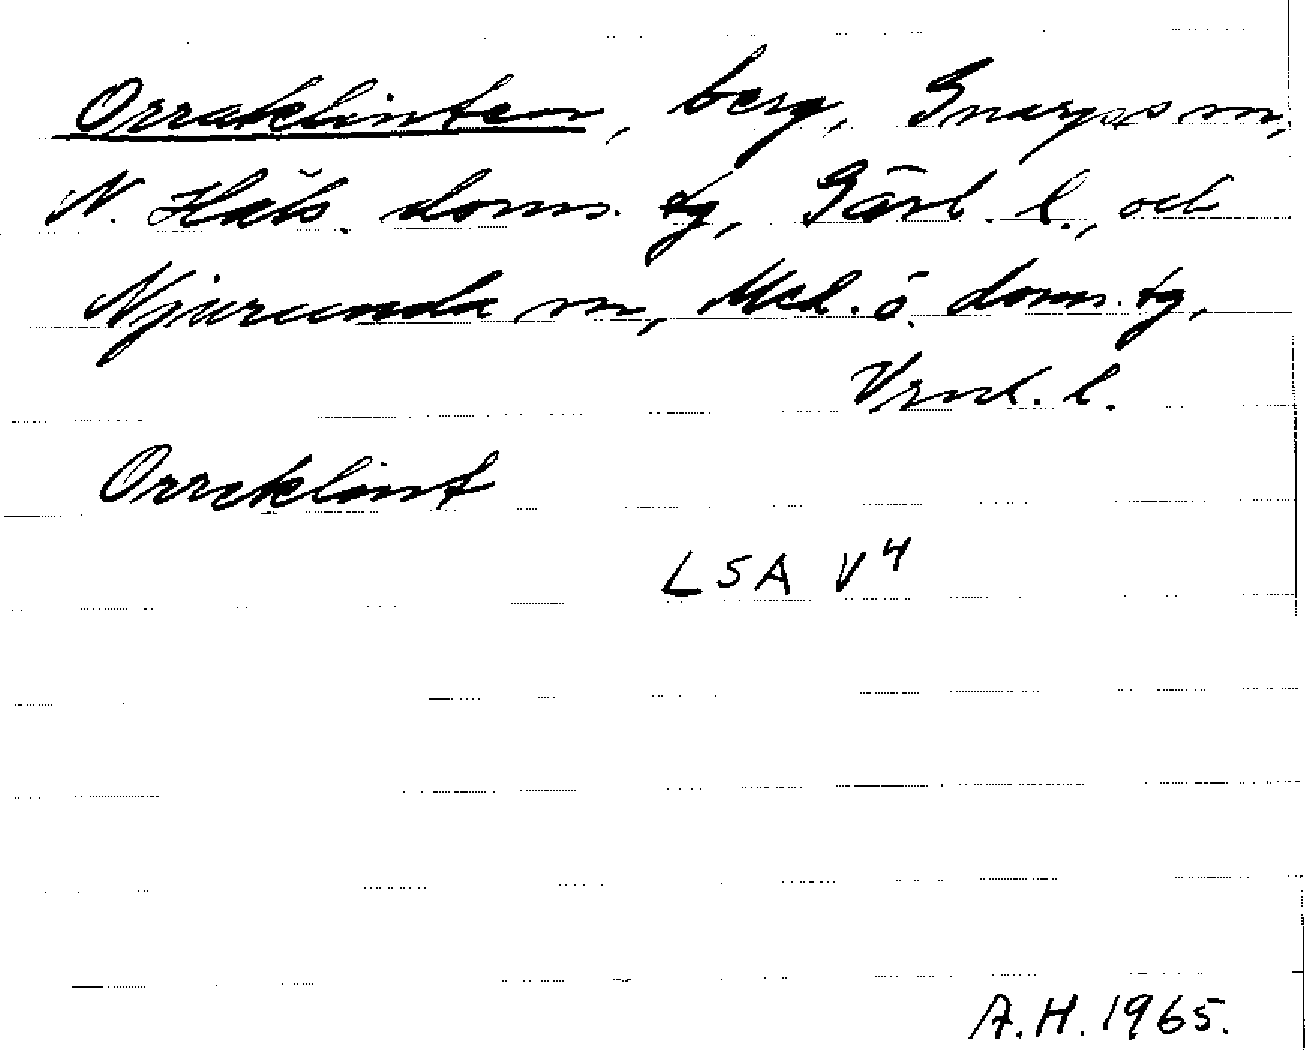 Orraklinten, berg, Gnarps sn,
N. Häls. doms. tg, Gävl. l., och
Njurunda sn, Med. ö. doms. tg,
Vrnl. l.
Orreklint
LSA V4
A.H. 1965.